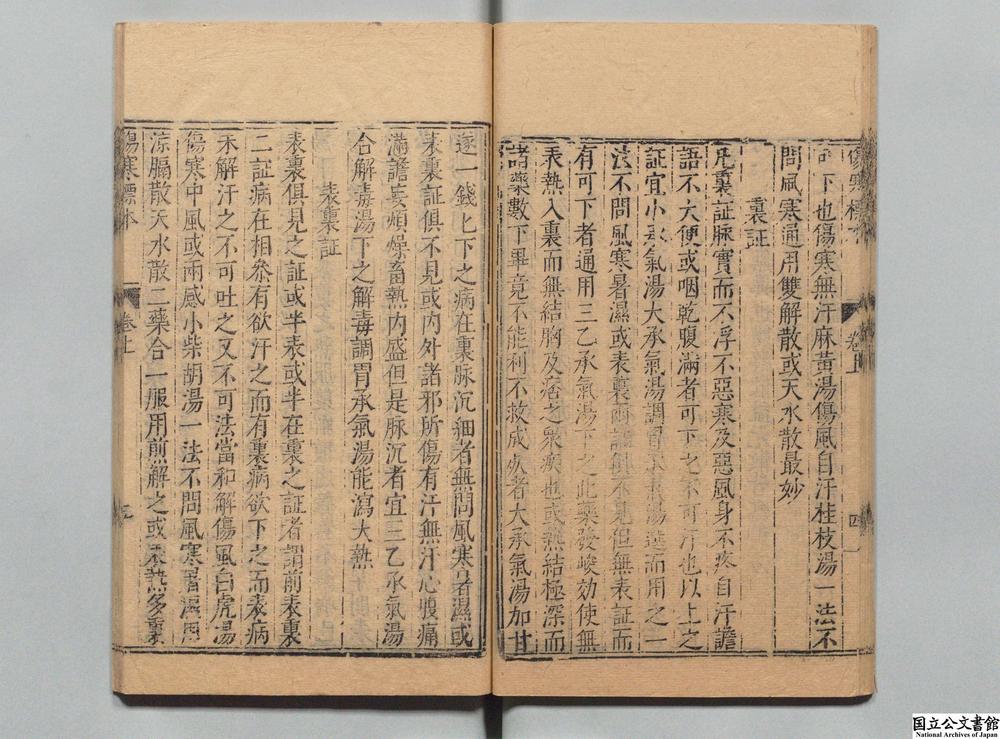 傷寒標本
卷上
四
可下也傷寒無汗麻黃湯傷風自汗桂枝湯一法不
問風寒通用雙解散或天水散最妙
裏証
凡裏証脉實而不浮不惡寒及惡風身不疼自汗譫
語不大便或咽乾腹滿者可下之不可汗也以上之
証宜小承氣湯大承氣湯調胃承氣湯選而用之一
法不問風寒暑濕或表裏兩証俱不見但無表証而
有可下者通用三乙承氣湯下之此藥發峻効使無
表熱入裏而無結胸及痞之衆疾也或熱結極深而
諸藥數下畢竟不能利不救成死者大承氣湯加甘
遂一錢匕下之病在裏脉沉細者無問風寒暑濕或
表裏証俱不見或内外諸邪所傷有汗無汗心腹痛
滿譫妄煩燥畜熱内盛但是脉沉者宜三乙承氣湯
合解毒湯下之解毒調胃承氣湯能瀉大熱
表裏証
表裏俱見之証或半表或半在裏之証者謂前表裏
二証病在相叅有欲汗之而有裏病欲下之而表病
未解汗之不可吐之又不可法當和解傷風白虎湯
傷寒中風或兩感小柴胡湯一法不問風寒暑濕用
涼膈散天水散二藥合一服用煎解之或表熱多裏
傷寒標本
卷上
国立公文書館
National Archives of Japan